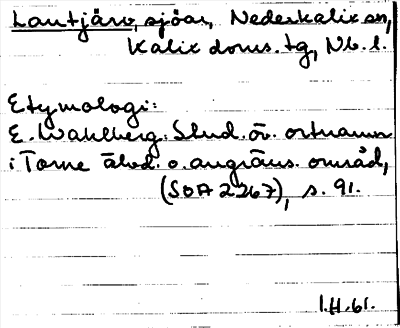 Lautjärv, sjöar, Nederkalix sn,
Kalix doms. tg, Nb. l.
Etymologi:
E. Wahlberg: Stud. öv. ortnamn
i Torne älvd. o. angräns. områd,
(SOA 2267), s. 91.
I.H. 61.